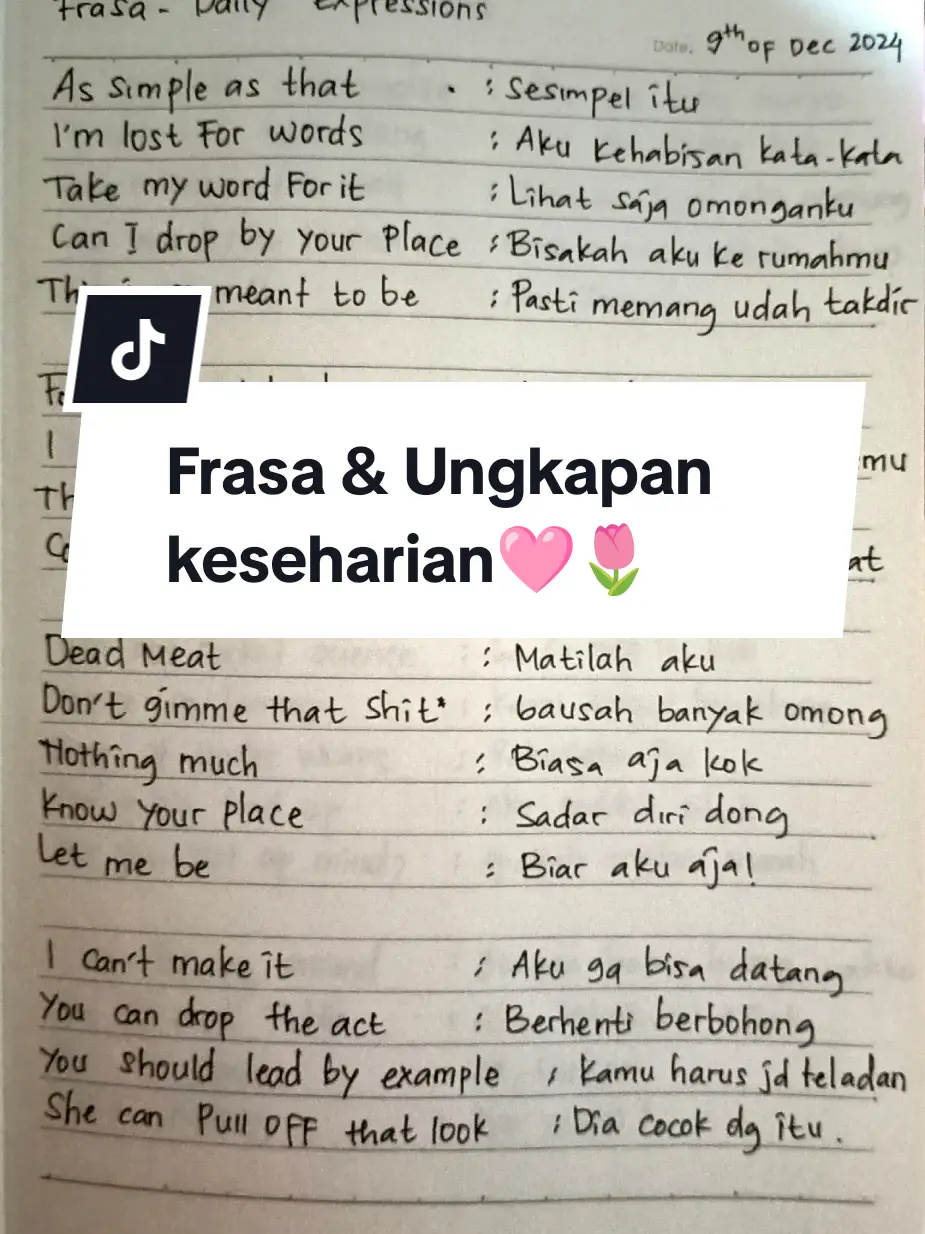 Frasa - Daily Expressions
Date. 9th of Dec 2024
As simple as that : Sesimpel itu
I'm lost for words : Aku kehabisan kata-kata
Take my word for it : Lihat saja omonganku
Can I drop by your place : Bisakah aku ke rumahmu
meant to be : Pasti memang udah takdir
I
mu
Frasa & Ungkapan
keseharian🩷🌷
Dead Meat : Matilah aku
Don't gimme that shit* : Gausah banyak omong
Nothing much : Biasa aja kok
Know your place : Sadar diri dong
Let me be : Biar aku aja!
I can't make it : Aku gq bisa datang
You can drop the act : Berhenti berbohong
You should lead by example : Kamu harus jd teladan
She can pull off that look : Dia cocok dg itu.